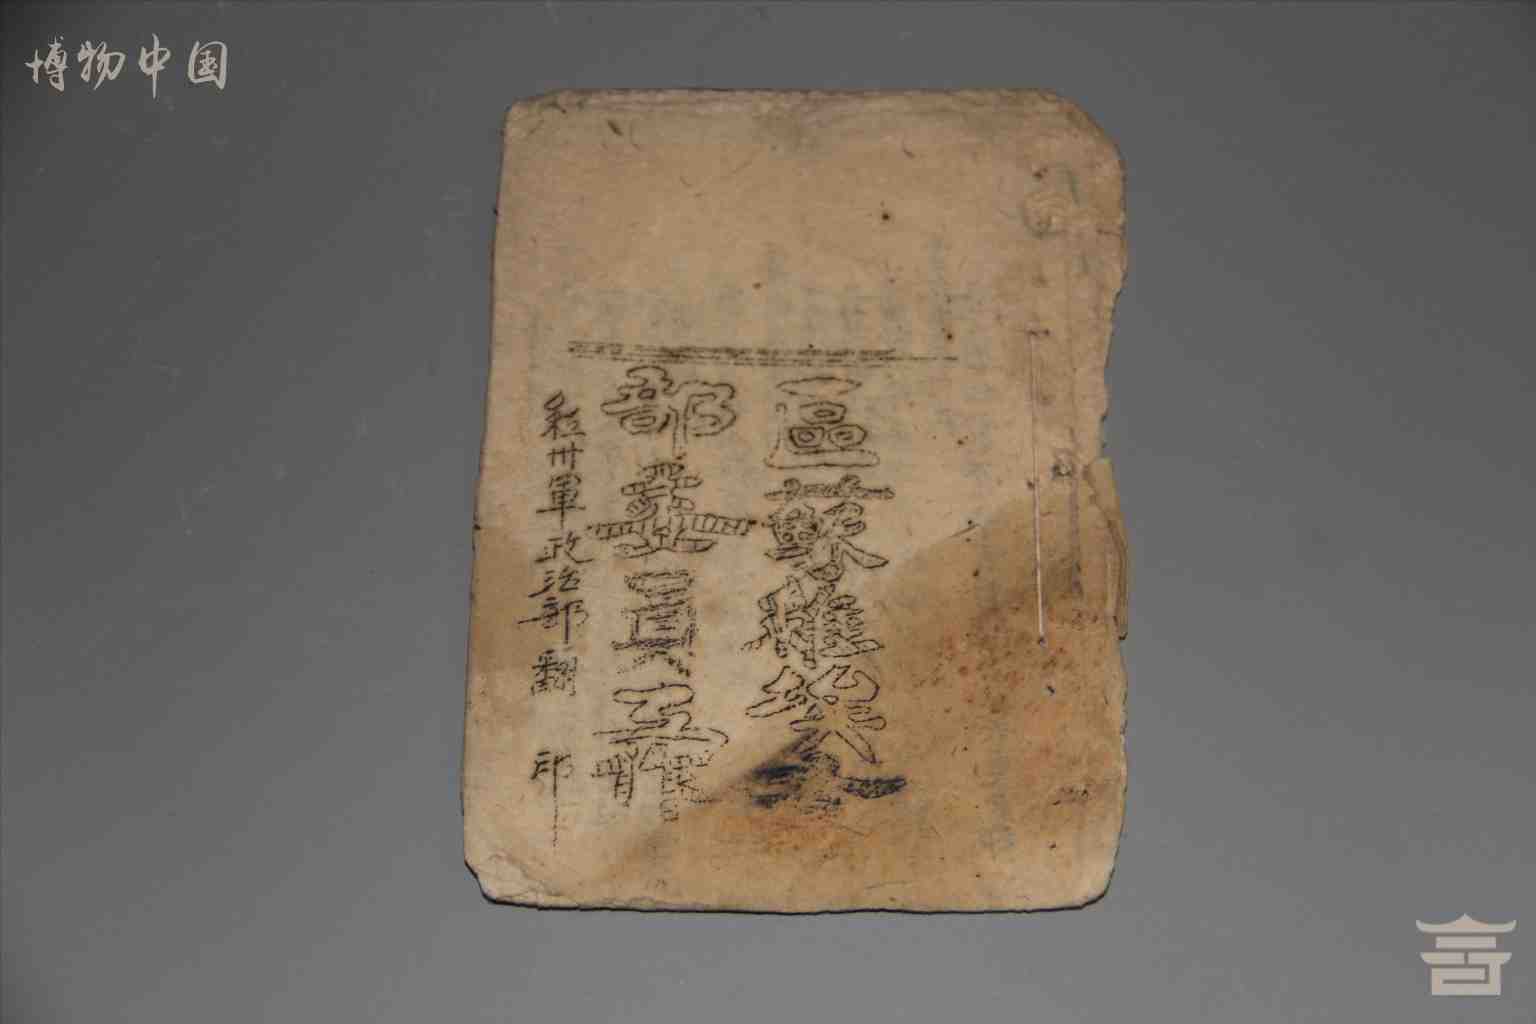 博物中国
區蘇維埃
部 員
紅卅軍政治部翻印